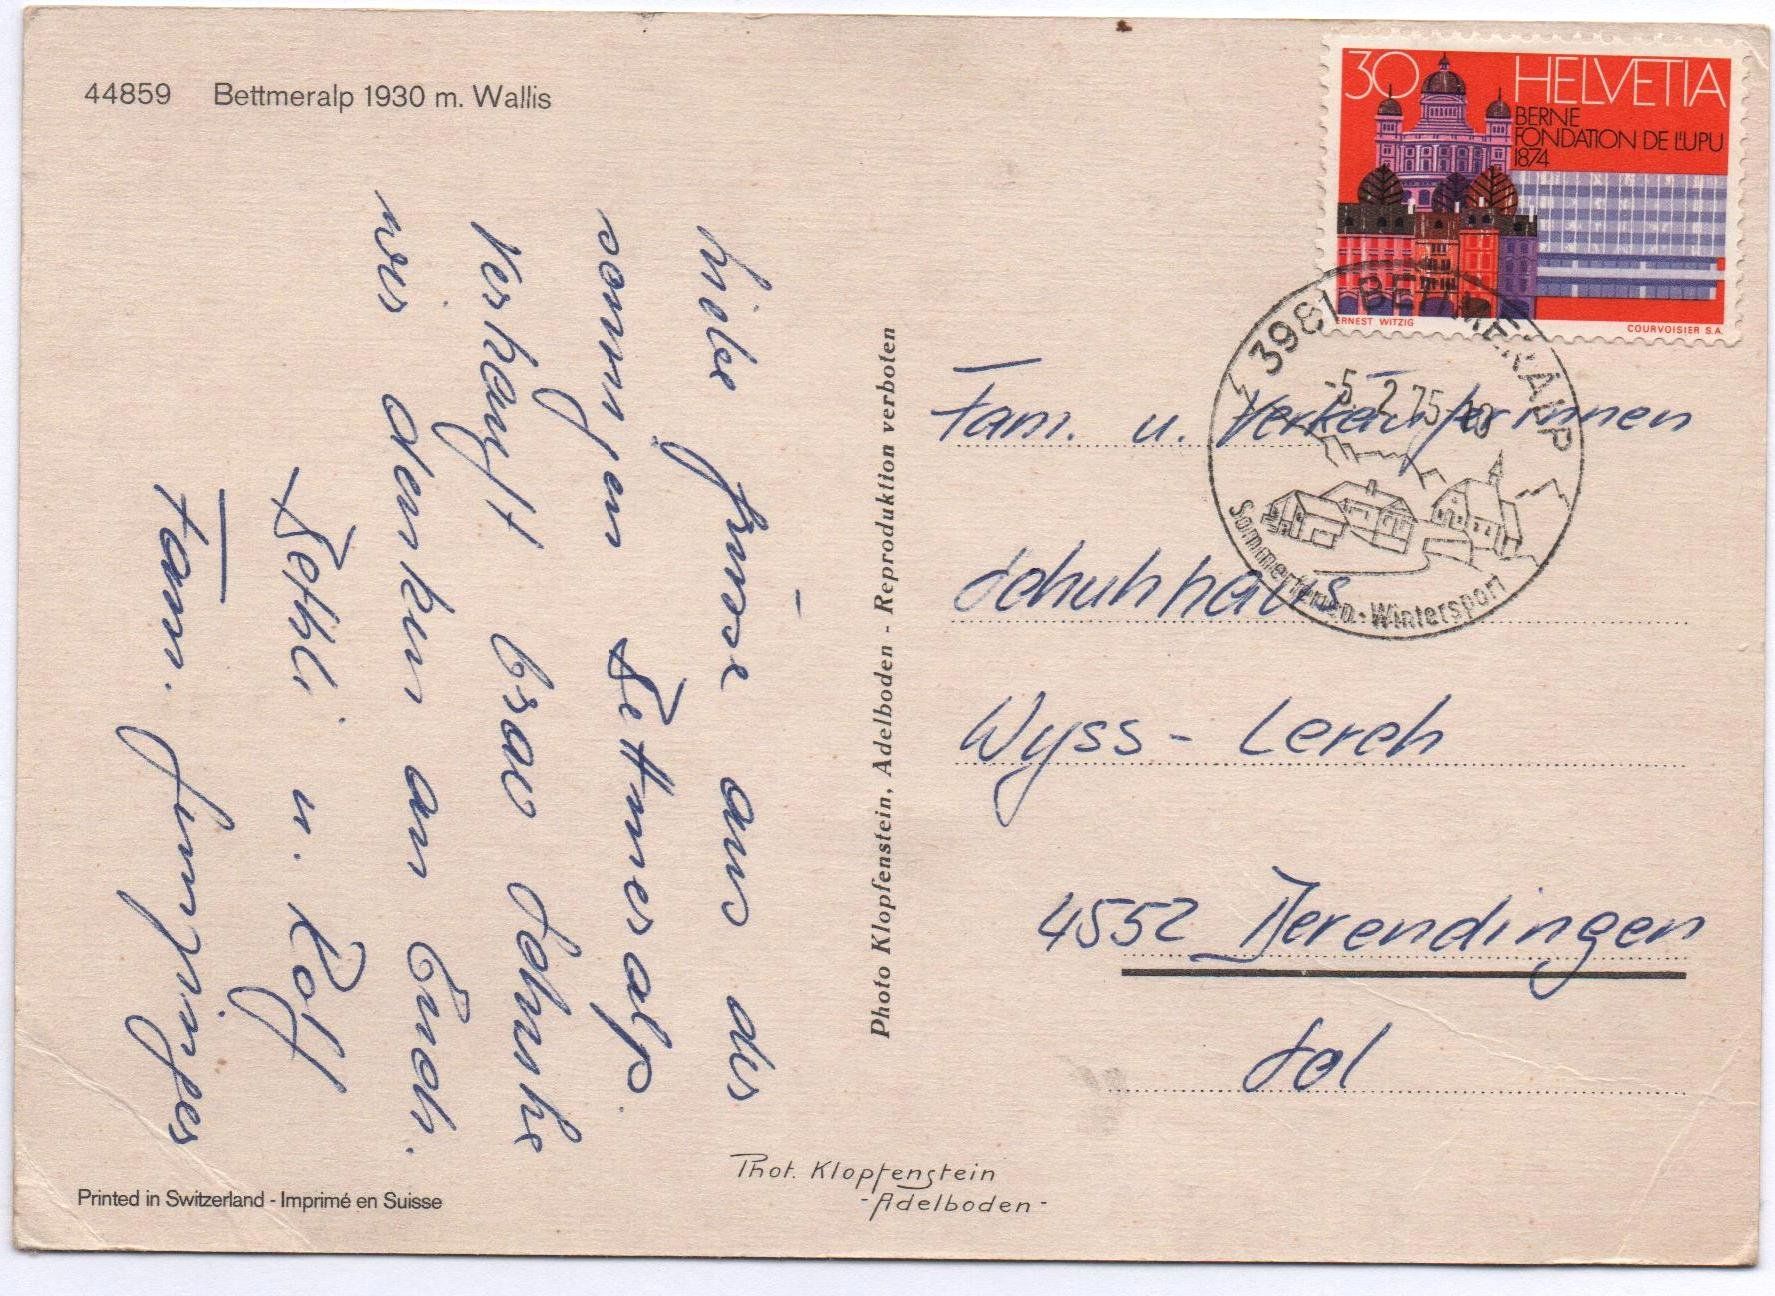 44859 Bettmeralp 1930 m. Wallis
Liebe Grüsse aus der
sonnigen Bettmeralp.
Verkauft brav Schuhe
wir denken an Euch.
Bethli u. Rolf
Fam.
Photo Klopfenstein, Adelboden - Reproduktion verboten
30 HELVETIA
BERNE
FONDATION DE L'UPU
1874
ERNEST WITZIG
COURVOISIER S.A.
3981 BETTMERALP
-5.-2.75
Sommerferien-Wintersport
Fam. u. Verkäuferinnen
Schuhhaus
Wyss-Lerch
4552 Derendingen
Sol
Phot. Klopfenstein
-Adelboden-
Printed in Switzerland - Imprimé en Suisse